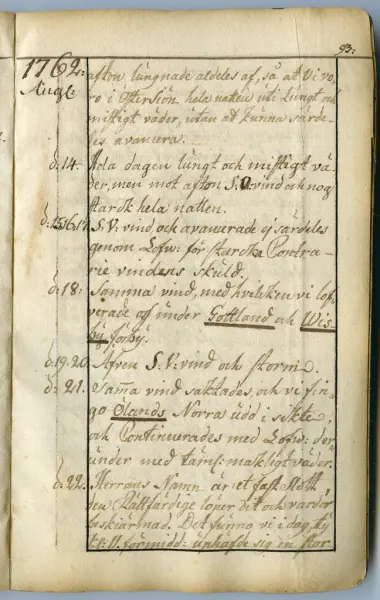 93:
1762:
Augti
afton lungnade aldeles af, så at Vi vo,
ro i Östersiön hela natten uti Lungt och
mistigt väder, utan at kunna särde-
les avancera.
d: 14. Hela dagen lungt och mistigt vä
der, men mot afton S.O. vind och nog
stardk hela natten.
d: 15.16.17. S.V. vind och avancerade ej särdeles
genom Lofw: för starcka Contra-
rie vindens skuld.
d: 18: Samma vind, med hvilken vi lof-
verade af under Gottland och Wis-
by förbij.
d: 19.20. Äfven S.V: vind och storm.
d: 21. Sama vind saktades, och vi fin-
go Ölands Norra udd i sikte,
och Continuerades med Lofw: der-
under med täml: makligt väder.
d: 22. Herrans Namn är et fast Slott,
den Rättfärdige löper dit och varder
beskiärmad. Det funno vi i dag, ty
kl: 11. förmidd: uphäfde sig en star